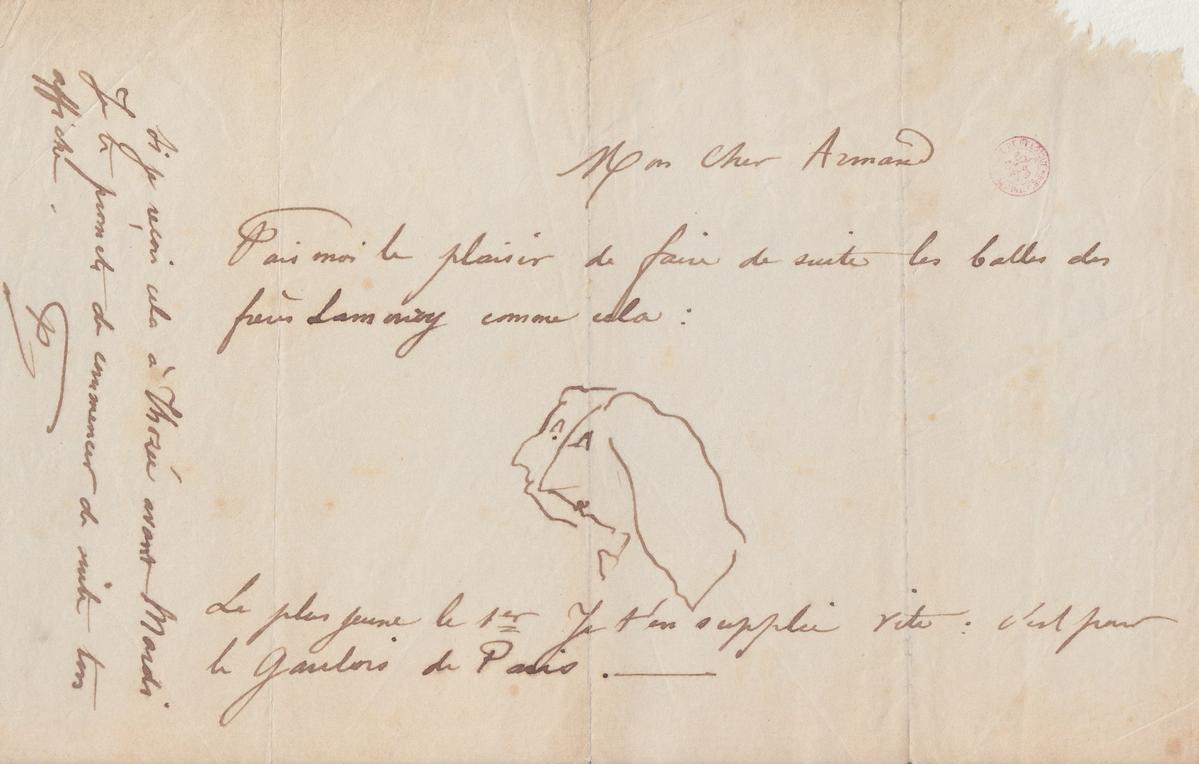 Mon Cher Armand
Fais moi le plaisir de faire de suite les balles des
frères Lamoury comme cela :
Le plus jeune le 1er Je t'en supplie vite : c'est pour
le Gaulois de Paris .
Si je reçois cela à Thoré avant Mardi
Je te promets de commencer de suite ton
affiche .